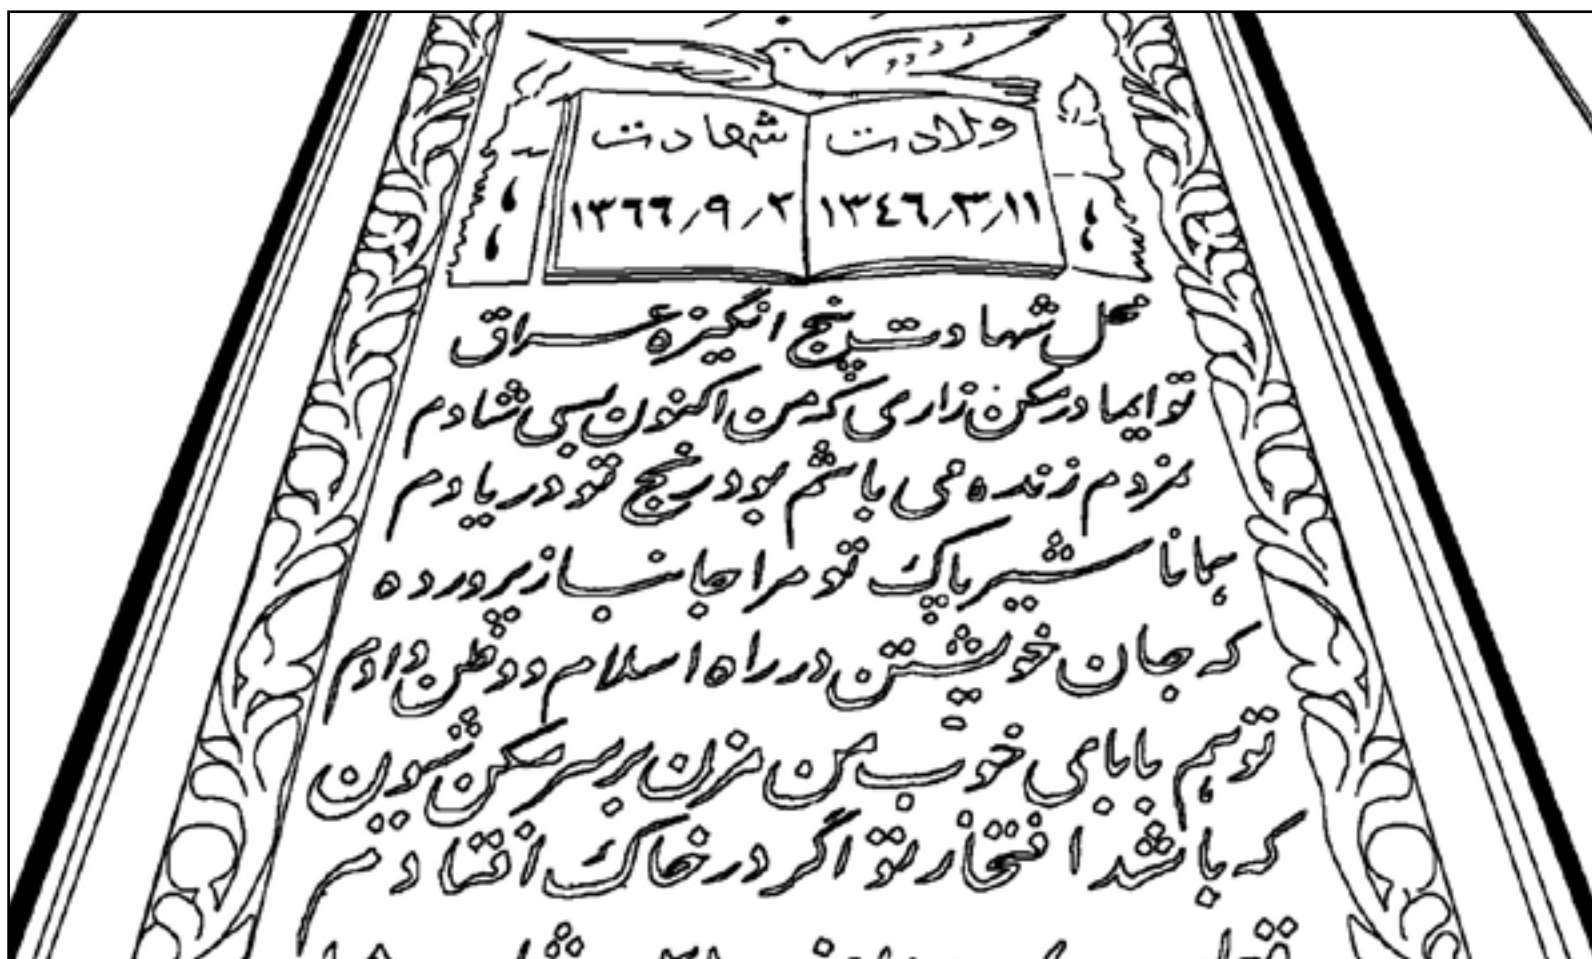 ولادت شهادت
۱۳٤٦/۳/۱۱ ۱۳٦٦/۹/۲
محل شهادت پنج انگیزه عراق
تو ایمادر مکن زاری که من اکنون بسی شادم
نمردم زنده می باشم بود رنج تو در یادم
همانا شیر پاک تو مرا جانباز پرورده
که جان خویشتن در راه اسلام و وطن دادم
تو هم بابای خوب من مزن بر سر مکن شیون
که باشد افتخار تو اگر در خاک افتادم